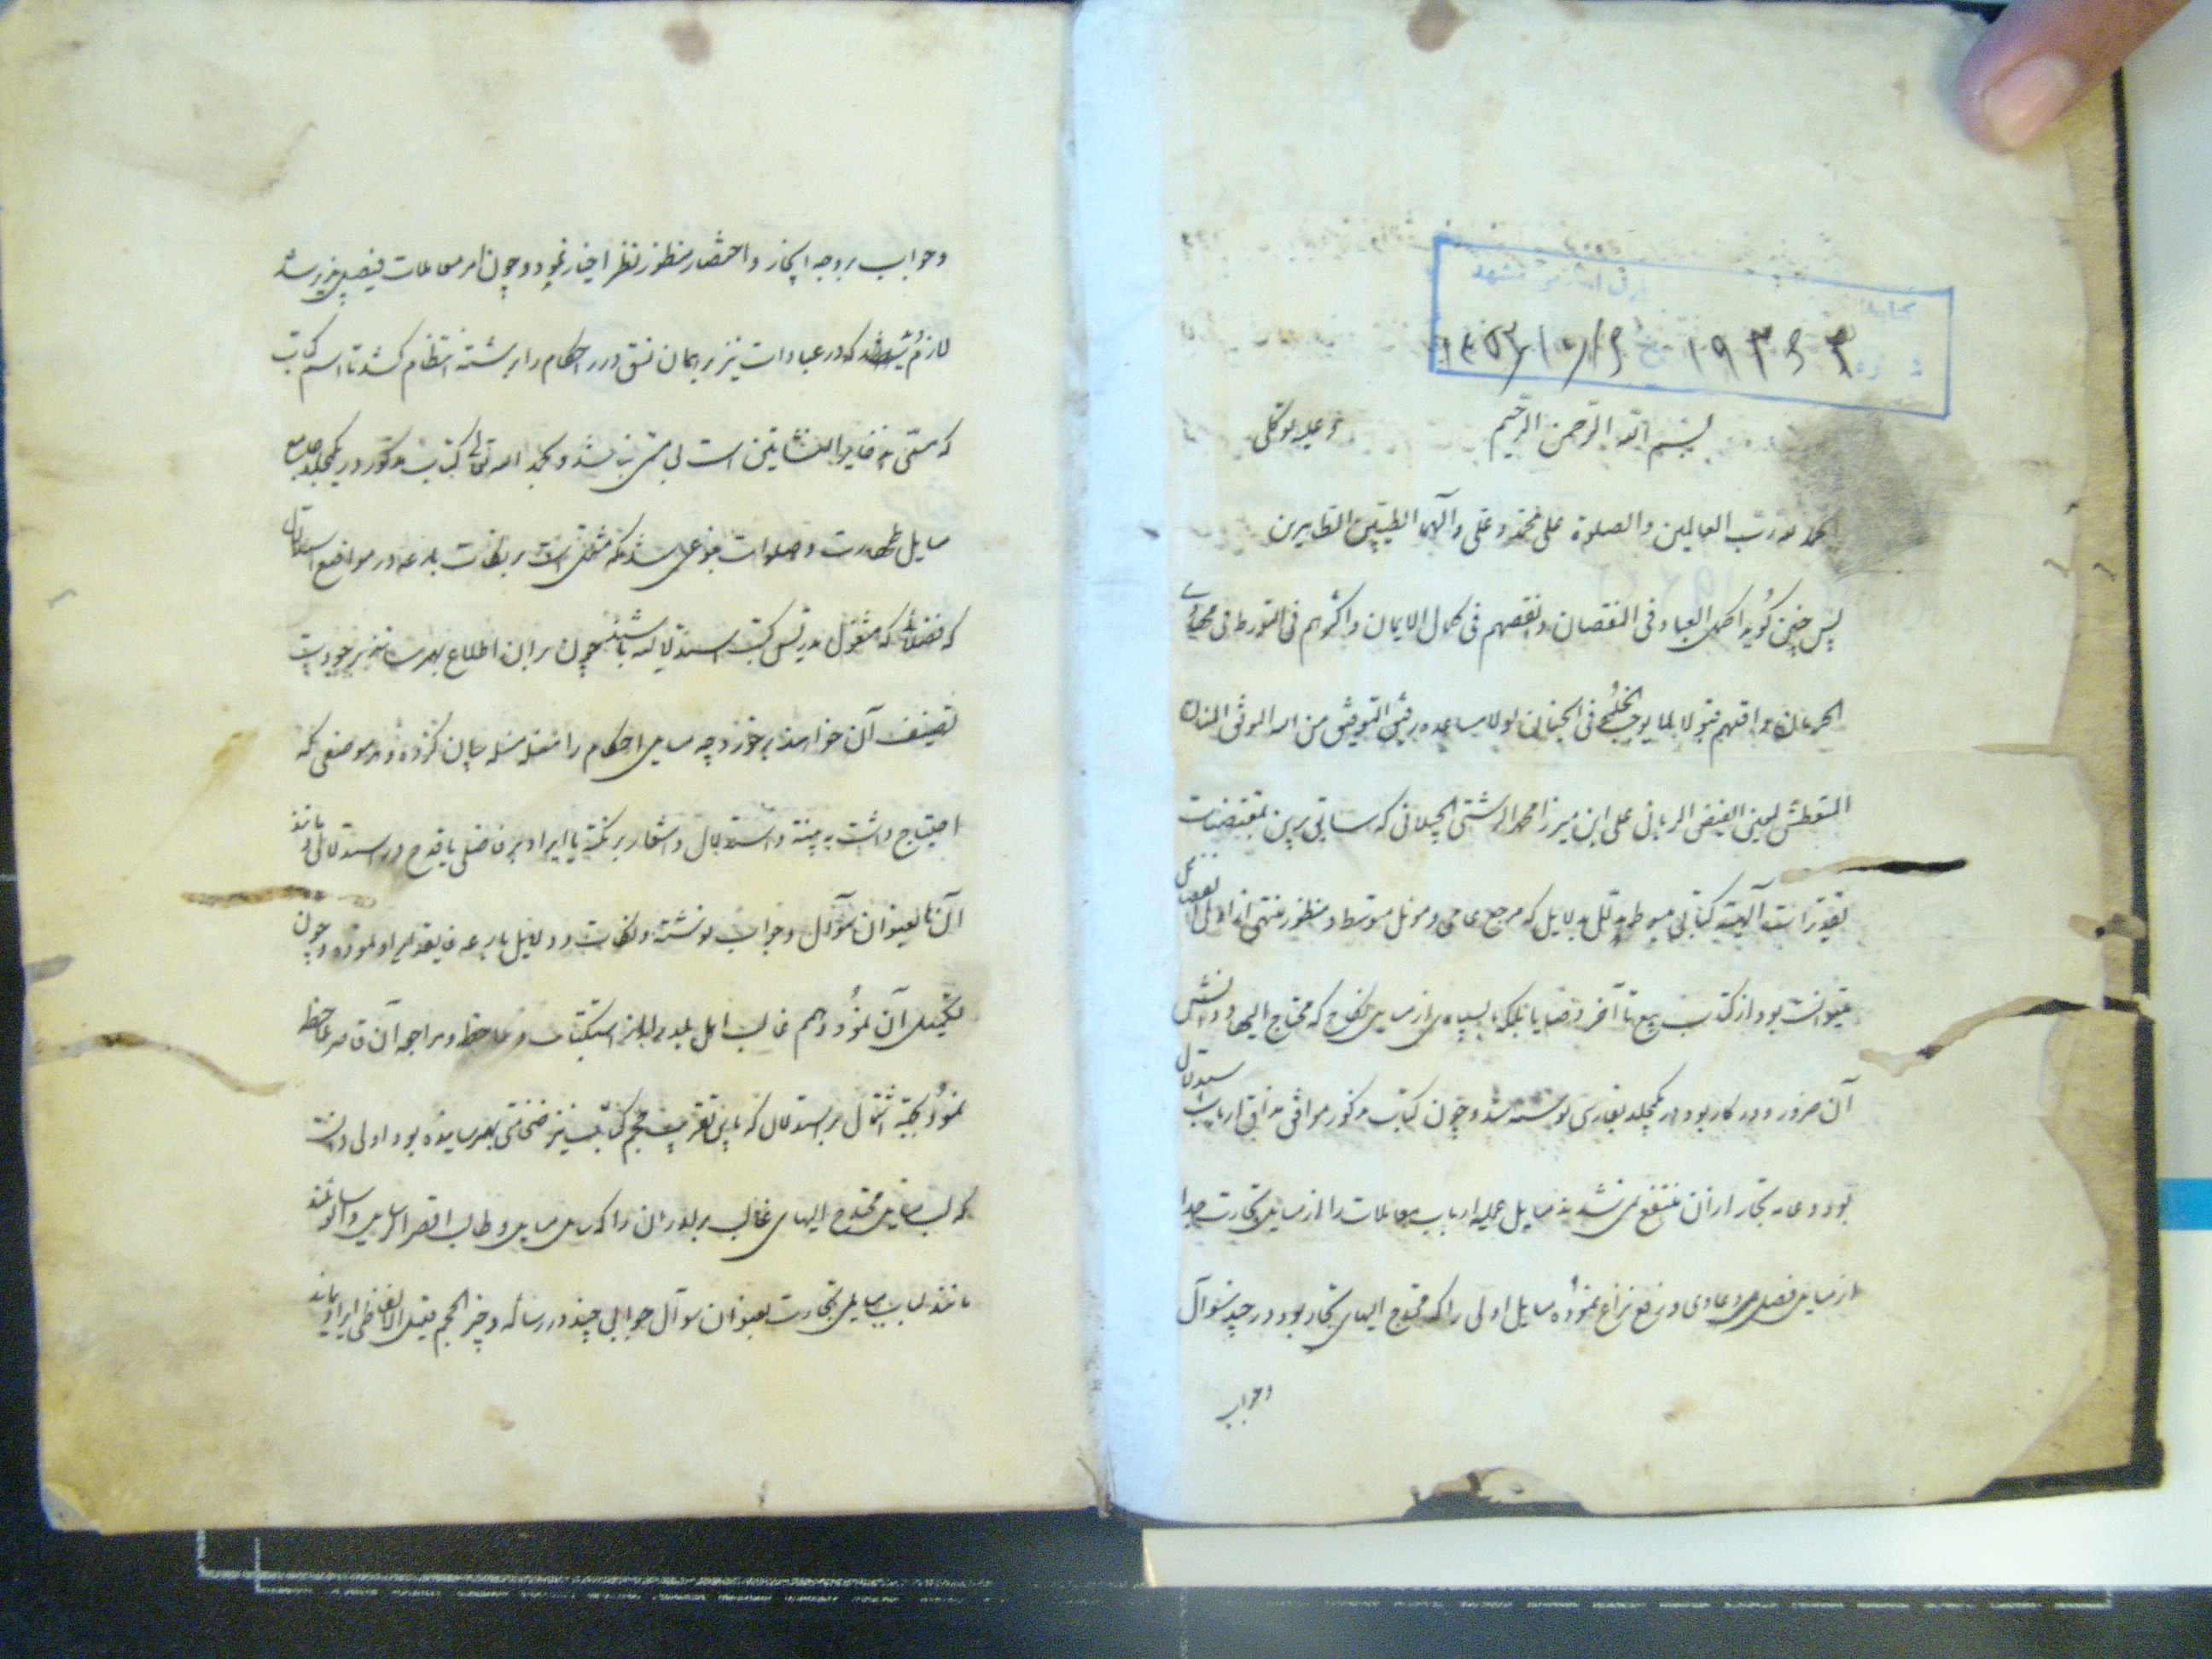 ۱۹۳۶۳
بسم الله الرحمن الرحیم و علیه توکلی
الحمد لله رب العالمین و الصلوة علی محمد و علی و آلهما الطیبین الطاهرین
پس چنین گوید اکمل العباد فی النقصان و انقصهم فی کمال الایمان و اکثرهم فی التورط فی
الحرمان و اقلهم قبولا لما یوجب فی الجنان لولا مساعده رفیق التوفیق من الله
المتعطش لمعین الفیض الربانی علی ابن میرزا محمد الرشتی الجیلانی که سابق برین بمقتضیات
تقدیرات آلهیه کتابی مبسوط مدلل بدلایل که مرجع عامی و موئل متوسط و منظور منتهی
بود از کتاب بیع تا آخر قضایا بلکه بسیاری از مسایل نکاح که محتاج الیها و دانش
آن ضرور و در کار بود در یکجلد بفارسی نوشته شد و چون کتاب مذکور موافق مذاق ارباب استدلال
بود و عامه تجار از آن منتفع نمی شدند مسایل عملیه ارباب معاملات را از مسایل تجارت جدا
از مسایل فصل دعاوی و رفع نزاع نموده مسایل اولی را که محتاج الیهای تجار بود در چند سئوال
وجواب
وجواب بر وجه ایجاز و اختصار منظور نظر اخیار نمود و چون امر معاملات فیصل پذیر شد
لازم شد که در عبادات نیز بر همان نسق درر احکام را برشته انتظام کشد تا اسم کتاب
که مسمی به ذخایر النشاتین است بی مسمی نباشد و بحمد الله تعالی کتاب مذکور در یکجلد جامع
مسایل طهارت و صلوات بنوعی شد که مشتمل است بر نکات بارعه در مواضع استدلال
که فضلائی که مشغول تدریس کتب استدلالیه باشند چون بر آن اطلاع بهمرسانند بر جودت
تصنیف آن خواهند برخورد چه مسایل احکام را مسئله مسئله بیان کرده و در موضعی که
احتیاج داشت به بینه و استدلال و اشعار بر نکته یا ایراد بر فاضلی یا قدح در استدلال و مانند
آن بعنوان سؤال و جواب نوشته و نکات و دلایل بارعه فایقه ایراد نموده و چون
تکمیل آن نمود و هم غالب اهل بلد از استکتاب و ملاحظه و مراجعه آن قاصر ملاحظه
نمود بجهة اشتمال بر استدلال که باین تقریب حجم کتاب نیز ضخامتی بهمرسانیده بود اولی دانست
که لب مسایل محتاج الیهای غالب برادران را که سایل مسایل و طالب اقصر الرسایل و الوسایلند
مانند لباب مسایل تجارت بعنوان سوآل جوابی چند در رساله وجیز الحجم قلیل الالفاظ ایراد نماید